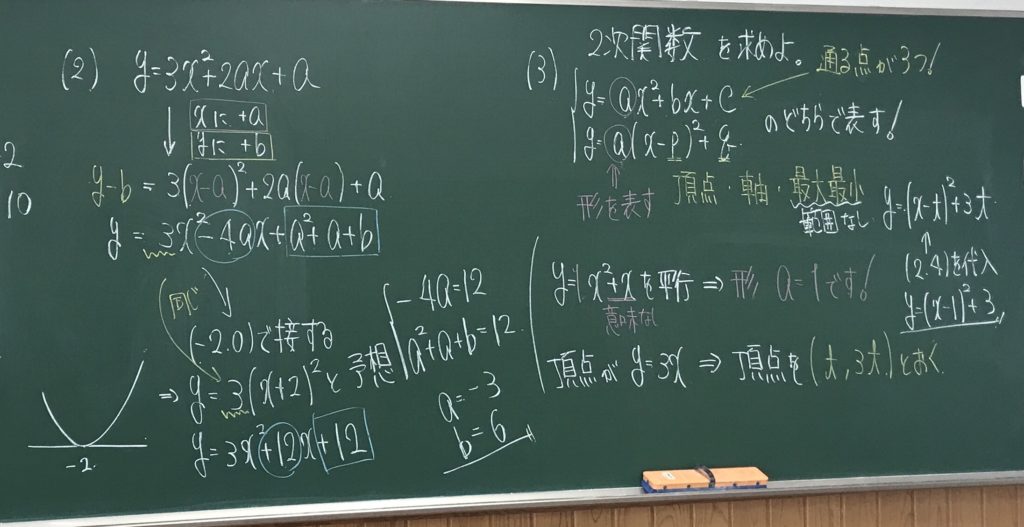 2
10
(2) y=3x²+2ax+a
xに +a
yに +b
y-b = 3(x-a)²+2a(x-a)+a
y= 3x²-4ax+a²+a+b
同じ
(-2.0)で接する
⇒ y=3(x+2)²と予想
y=3x²+12x+12
-2
-4a=12
a²+a+b=12
a=-3
b=6
(3) 2次関数 を求めよ。
通る点が3つ!
y=ax²+bx+c
y=a(x-p)²+q
のどちらで表す!
形を表す
頂点・軸・最大最小
範囲なし
y=1x²+xを平行 ⇒ 形 a=1です!
意味なし
頂点が y=3x ⇒ 頂点を (t,3t)とおく
y=(x-t)²+3t
(2.4)を代入
y=(x-1)²+3